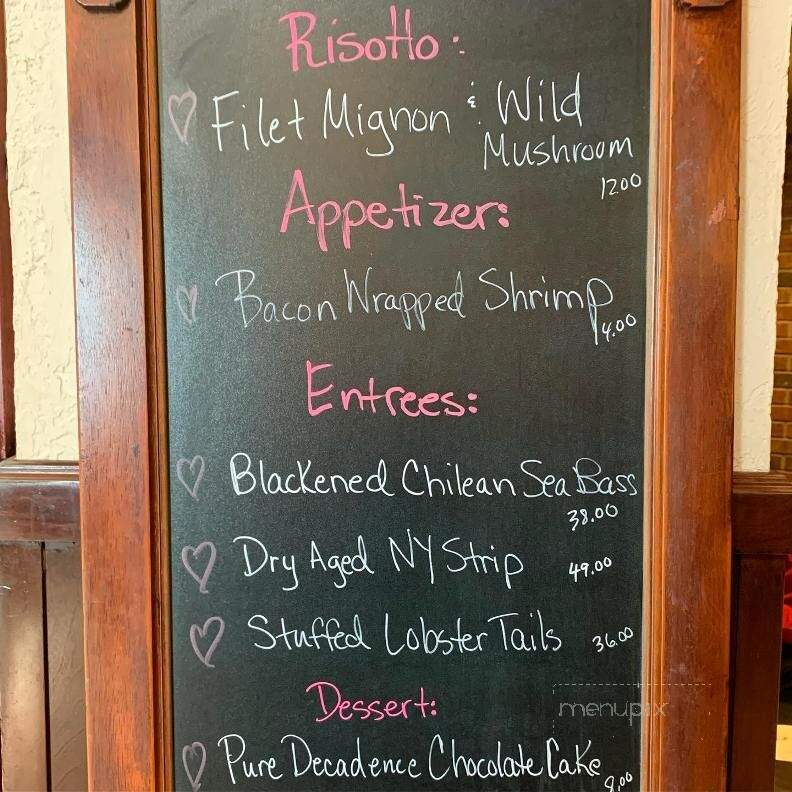 Risotto:
Filet Mignon & Wild
Mushroom
1200
Appetizer:
Bacon Wrapped Shrimp
14.00
Entrees:
Blackened Chilean Sea Bass
38.00
Dry Aged NY Strip 49.00
Stuffed Lobster Tails 36.00
Dessert:
menupix
Pure Decadence Chocolate Cake
9.00